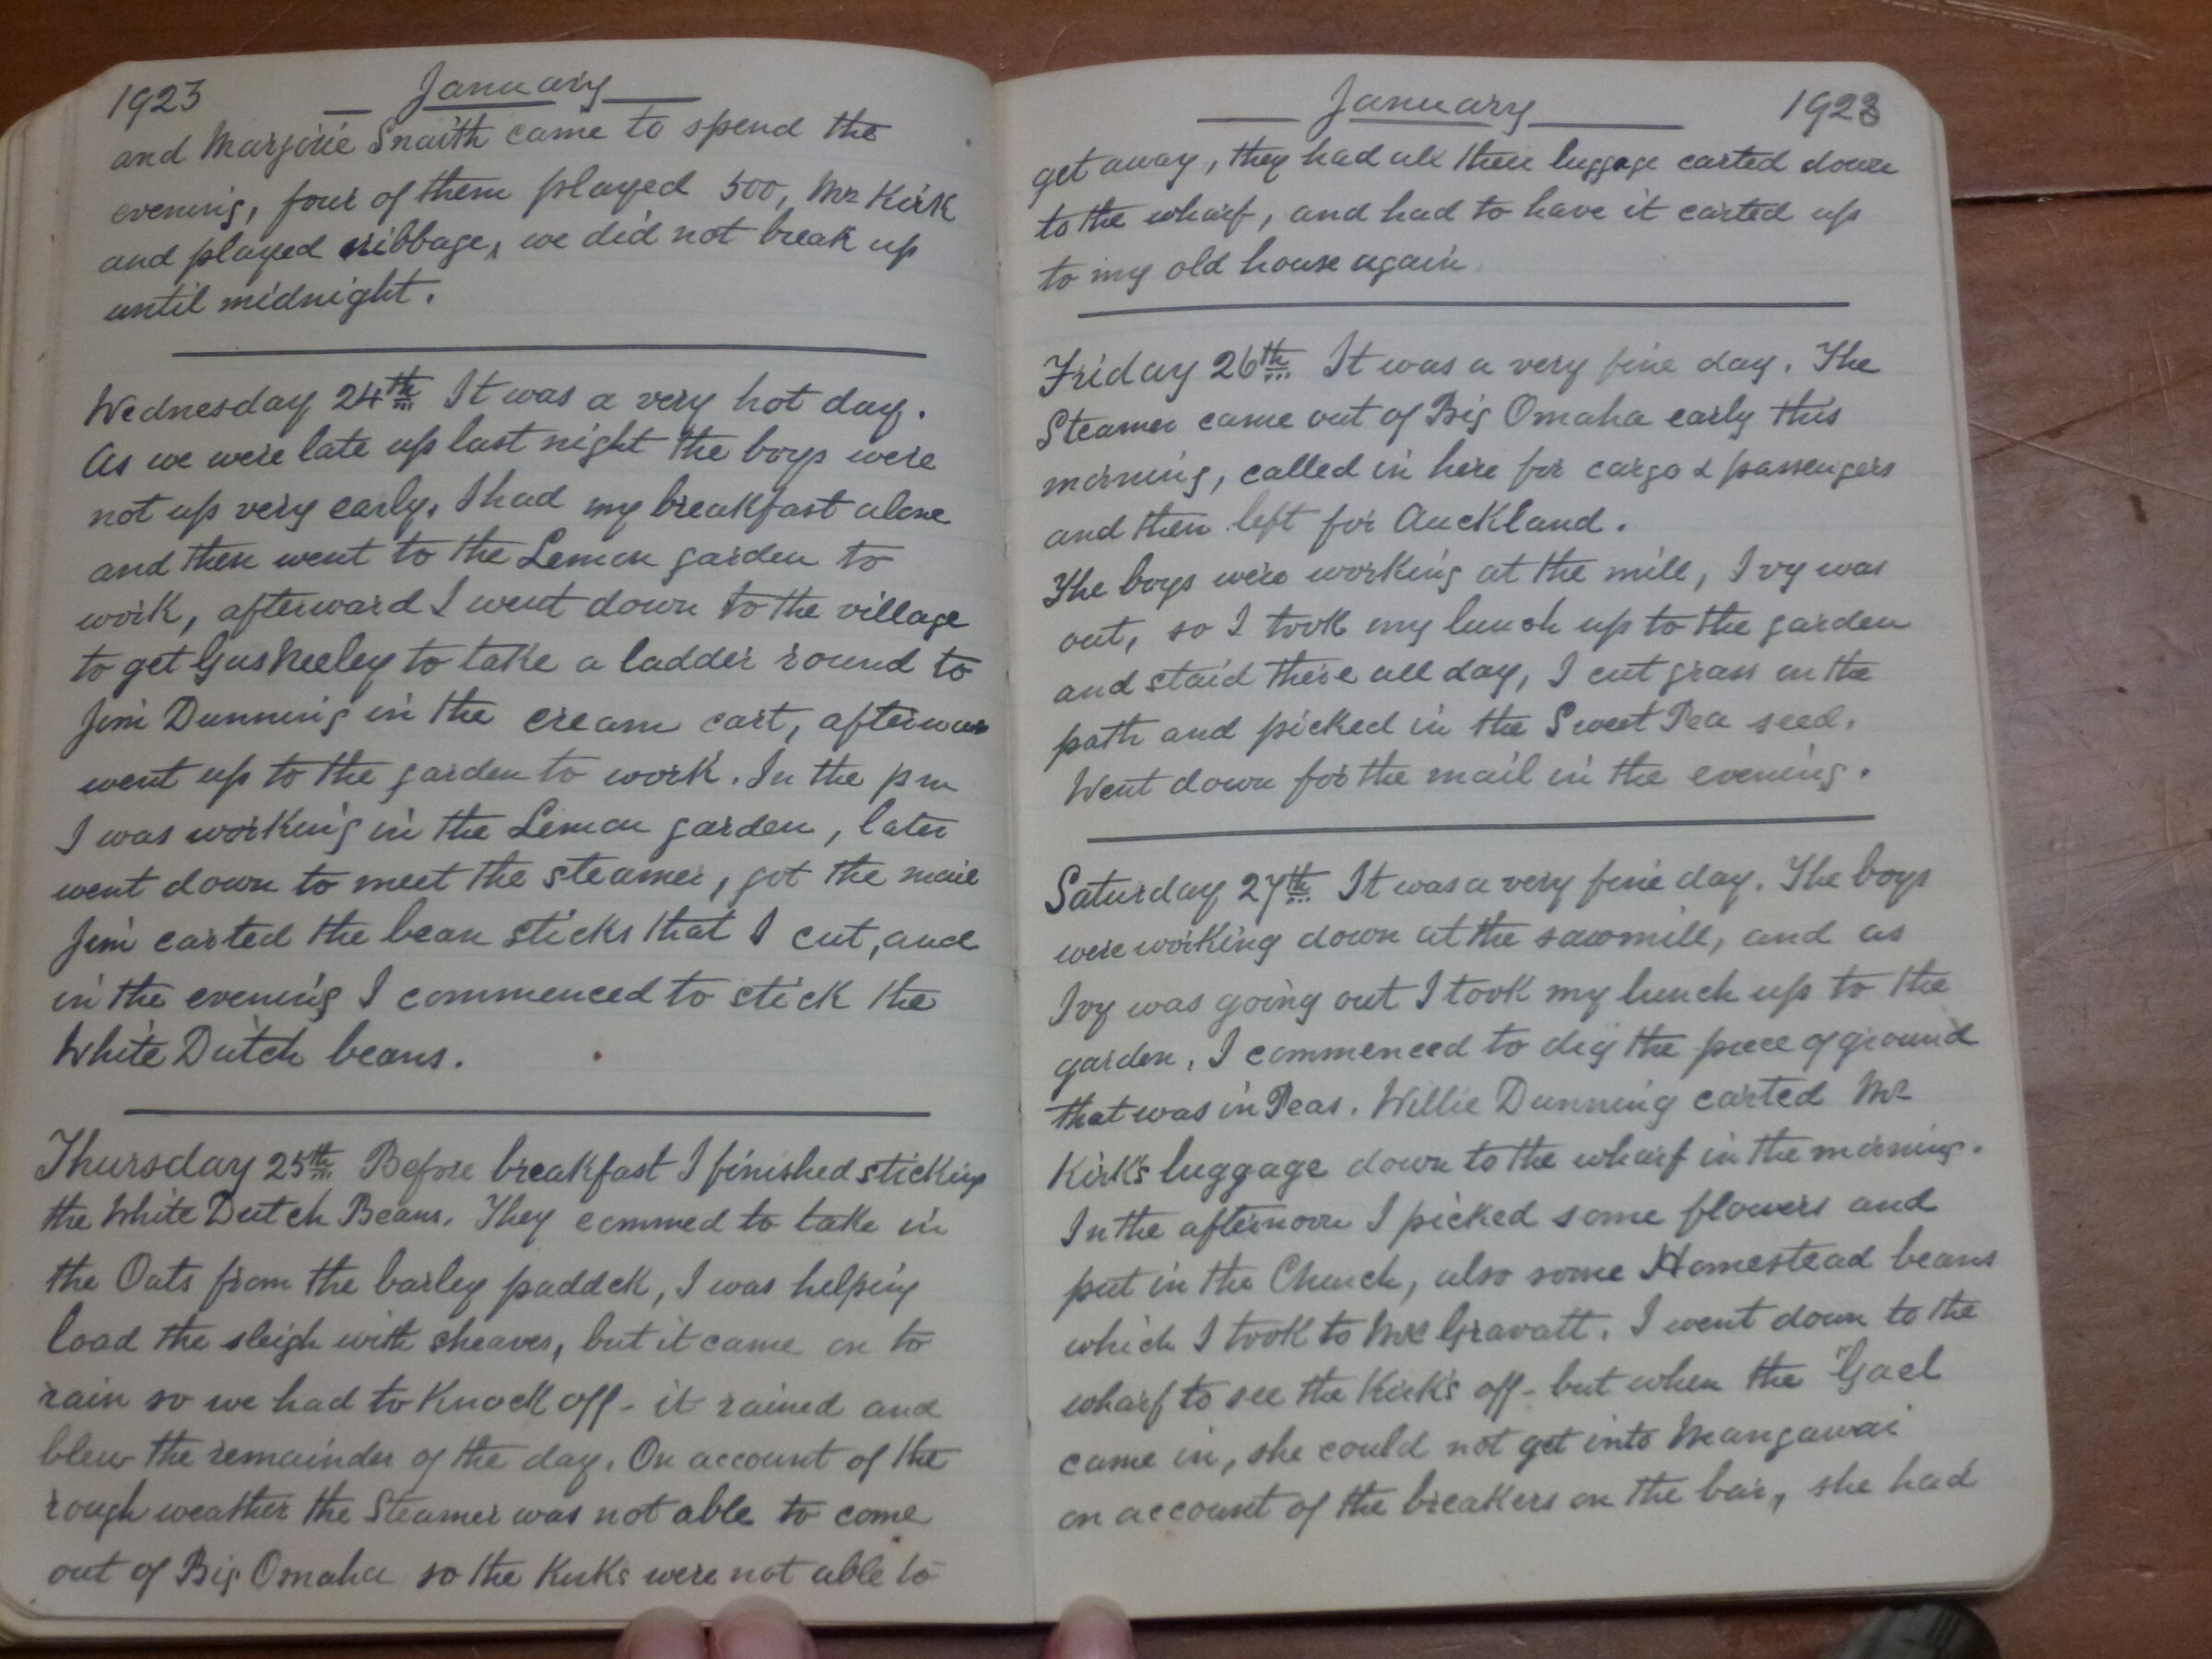 1923 January
and Marjorie Snaith came to spend the
evening, four of them played 500, Mr Kirk
and played cribbage, we did not break up
until midnight.
Wednesday 24th It was a very hot day.
As we were late up last night the boys were
not up very early. I had my breakfast alone
and then went to the Lemon garden to
work, afterward I went down to the village
to get Gus Keeley to take a ladder round to
Jim Dunning in the cream cart, afterwar
went up to the garden to work. In the pm
I was working in the Lemon garden, later
went down to meet the steamer, got the mail
Jim carted the bean sticks that I cut, and
in the evening I commenced to stick the
White Dutch beans.
Thursday 25th Before breakfast I finished sticking
the White Dutch Beans. They commed to take in
the Oats from the barley paddck, I was helping
load the sleigh with sheaves, but it came on to
rain so we had to Knock off - it rained and
blew the remainder of the day. On account of the
rough weather the Steamer was not able to come
out of Big Omaha so the Kirks were not able to
January 1923
get away, they had all their luggage carted down
to the wharf, and had to have it carted up
to my old house again
Friday 26th It was a very fine day. The
Steamer came out of Big Omaha early this
morning, called in here for cargo & passengers
and then left for Auckland.
The boys were working at the mill, Ivy was
out, so I took my lunch up to the garden
and staid there all day, I cut grass on the
path and picked in the Sweet Pea seed.
Went down for the mail in the evening.
Saturday 27th It was a very fine day. The boys
were working down at the sawmill, and as
Ivy was going out I took my lunch up to the
garden, I commenced to dig the piece of ground
that was in Peas. Willie Dunning carted Mr
Kirk's luggage down to the wharf in the morning.
In the afternoon I picked some flowers and
put in the Church, also some Homestead beans
which I took to Mrs Gravatt. I went down to the
wharf to see the Kirk's off - but when the "Gael
came in, she could not get into Mangawai
on account of the breakers on the bar, she had